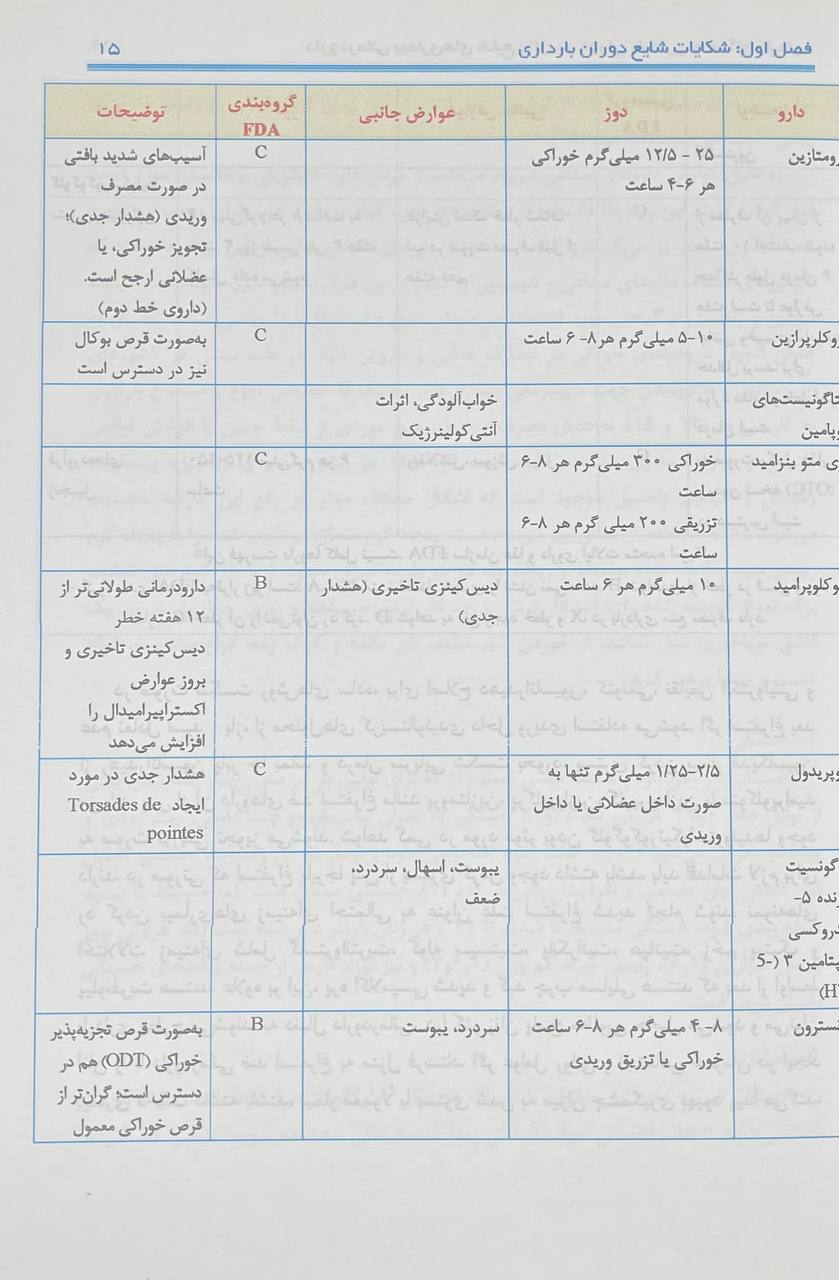 فصل اول: شکایات شایع دوران بارداری ۱۵
دارو دوز عوارض جانبی گروه‌بندی FDA توضیحات
۲۵ - ۱۲/۵ میلی‌گرم خوراکی
هر ۶-۴ ساعت
C
آسیب‌های شدید بافتی
در صورت مصرف
وریدی (هشدار جدی)؛
تجویز خوراکی، یا
عضلانی ارجح است.
(داروی خط دوم)
۱۰-۵ میلی‌گرم هر۸- ۶ ساعت
C
به‌صورت قرص بوکال
نیز در دسترس است
خواب‌آلودگی، اثرات
آنتی‌کولینرژیک
ی متو بنزامید
خوراکی ۳۰۰ میلی‌گرم هر ۸-۶
ساعت
تزریقی ۲۰۰ میلی گرم هر ۸-۶
ساعت
C
وکلوپرامید
۱۰ میلی‌گرم هر ۶ ساعت
دیس‌کینزی تاخیری (هشدار
جدی)
B
دارودرمانی طولانی‌تر از
۱۲ هفته خطر
دیس‌کینزی تاخیری و
بروز عوارض
اکستراپیرامیدال را
افزایش می‌دهد
وپریدول
۲/۵-۱/۲۵ میلی‌گرم تنها به
صورت داخل عضلانی یا داخل
وریدی
C
هشدار جدی در مورد
ایجاد Torsades de
pointes
گونسیت
نده ۵-
دروکسی
پتامین ۳ (-5
یبوست، اسهال، سردرد،
ضعف
نسترون
۸- ۴ میلی‌گرم هر ۸-۶ ساعت
خوراکی یا تزریق وریدی
سردرد، یبوست
B
به‌صورت قرص تجزیه‌پذیر
خوراکی (ODT) هم در
دسترس است؛ گران‌تر از
قرص خوراکی معمول